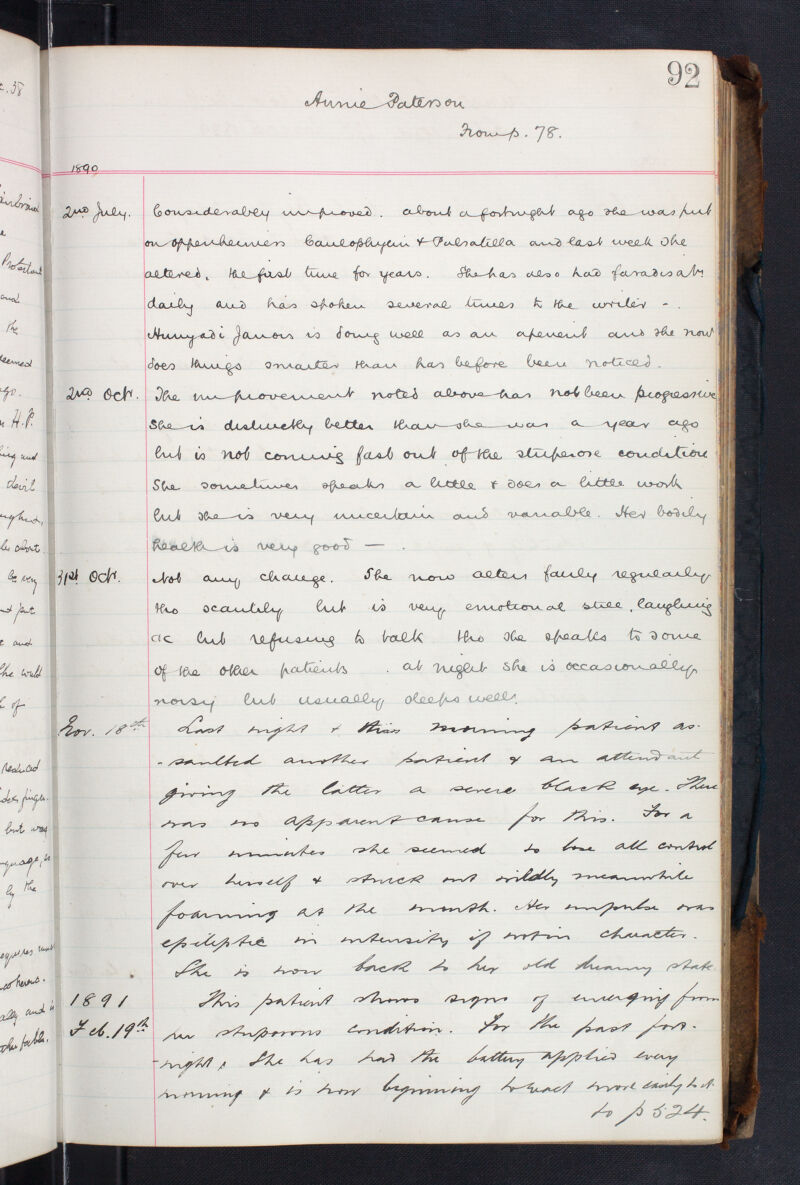 92
Annie Paterson
From p. 78.
1890
2nd July. Considerably improved. About a fortnight ago she was put
on oppenheimers Caulophyllin & Pulsatilla and last week she
altered, the first time for years. She has also had faradisatn
daily and has spoken several times to the writer -.
Hunyadi Janos is doing well as an aperient and she now
does things smarter than has before been noticed.
2nd Octr. The improvement noted above has not been progressive
She is distinctly better than she was a year ago
but is not coming fast out of the stuporose condition
She sometimes speaks a little & does a little work
but she is very uncertain and variable. Her bodily
health is very good — .
31st Octr. Not any change. She now alters fairly regularly
tho scantily but is very emotional still, laughing
&c but refusing to talk tho she speaks to some
of the other patients. at night she is occasionally
noisy but usually sleeps well.
Nov. 18th Last night & this morning patient as-
-saulted another patient & an attendant
giving the latter a severe black eye. There
was no apparent cause for this. For a
few minutes she seemed to lose all control
over herself & struck out wildly meanwhile
foaming at the mouth. Her impulse was
epileptic in intensity if not in character.
She is now back to her old dreamy state
1891 This patient shows signs of emerging from
Feb. 19th her stuporous condition. For the past fort-
-night, she has had the battery applied every
morning & is now beginning to react more easily to it
to p 524.